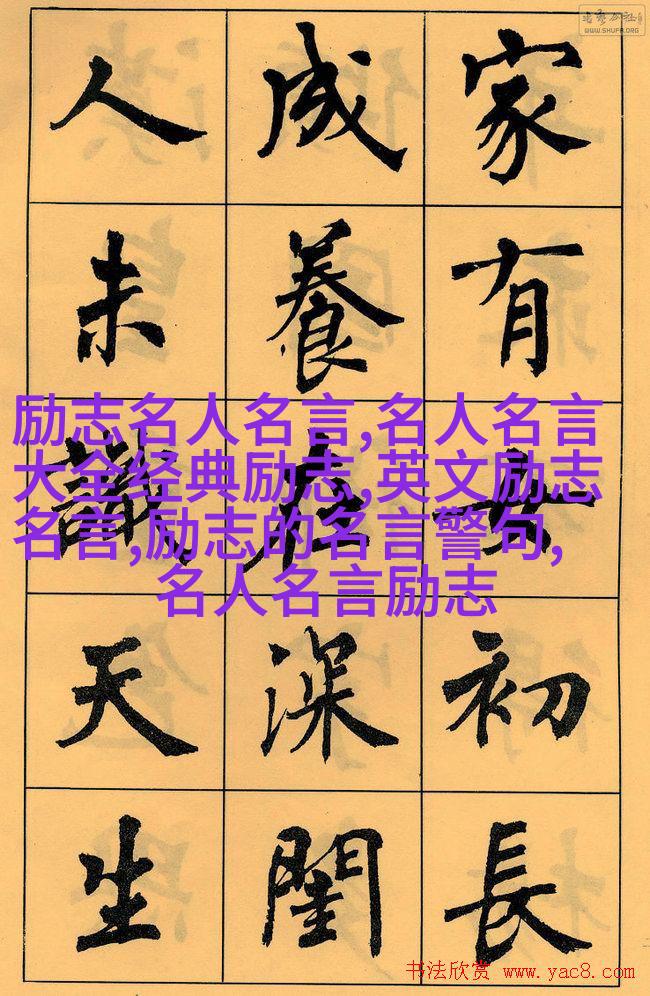 WWW.SHUFA.ORG
家有女初長
成養在深閨
人未識天生
励志名人名言,名人名言
大全经典励志,英文励志
名言,励志的名言警句,
名人名言励志
书法欣赏 www.yac8.com